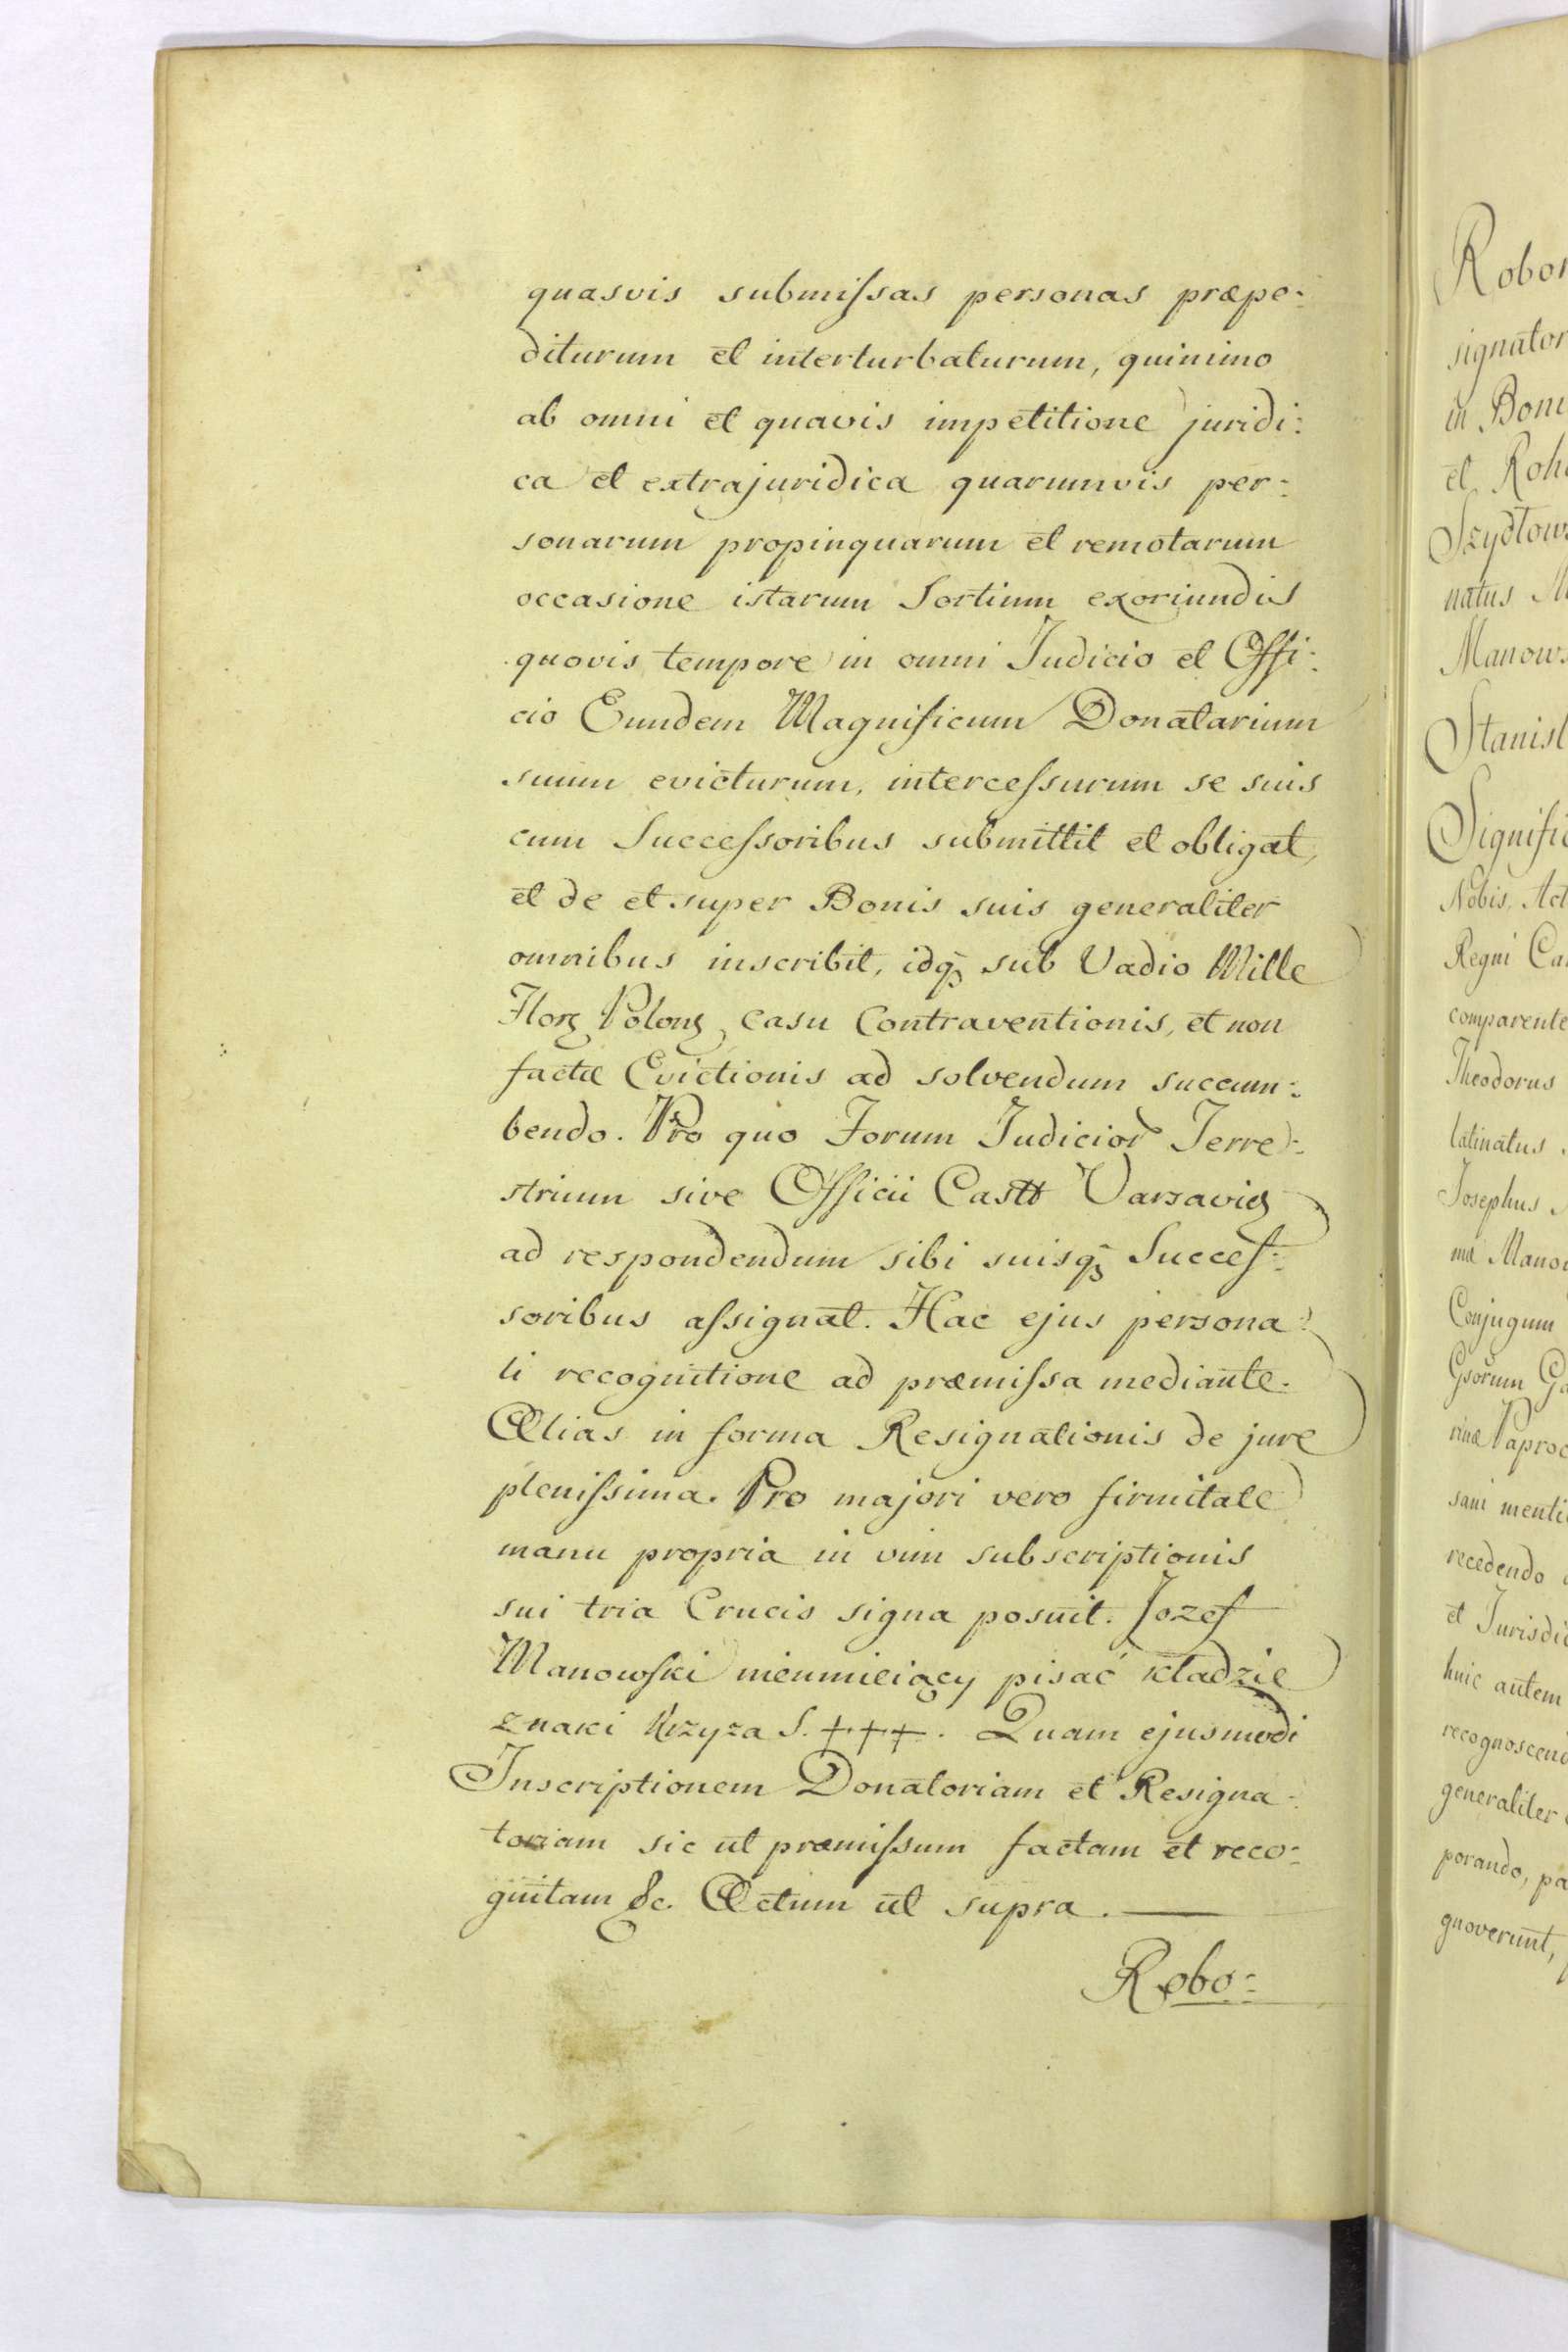 quasvis submiſsas personas præpe=
diturum et interturbaturum, quinimo
ab omni et quavis impetitione juridi=
ca et extrajuridica quarumvis per=
sonarum propinquarum et remotarum
occasione istarum Sortium exoriundis
quovis tempore in omni Judicio et Offi=
cio Eundem Magnificum Donatarium
suum evicturum, interceſsurum se suis
cum Succeſsoribus submittit et obligat,
et de et super Bonis suis generaliter
omnibus inscribit, idqꝫ sub Vadio Mille
Florꝫ Polonꝫ casu Contraventionis, et non
factæ Evictionis ad solvendum succum=
bendo. Pro quo Forum Judicior Terre=
strium sive Officii Castt Varsavieꝫ
ad respondendum sibi suisqꝫ Succeſ=
soribus aſsignat. Hac ejus persona=
li recognitione ad præmiſsa mediante.
Alias in forma Resignationis de jure
pleniſsima. Pro majori vero firmitate
manu propria in vim subscriptionis
sui tria Crucis signa posuit. Jozef
Manowſki nieumieiący pisać kładzie
znaki Krzyza S. +++. Quam ejusmodi
Inscriptionem Donatoriam et Resigna=
toriam sic ut præmiſsum factam et reco=
gnitam &c. Actum ut supra.
Robo=
Robor
signator
in Boni
et Roh
Szydłows
natus M
Manows
Stanisl
Signific
Nobis, Act
Regni Ca
comparente
Theodorus
latinatus
Josephus
ma Mano
Conjugum
Gsorum Ga
rinæ Paproc
sani menti
recedendo
et Jurisdic
huic autem
recognoscend
generaliter
porando, pa
gnoverunt,